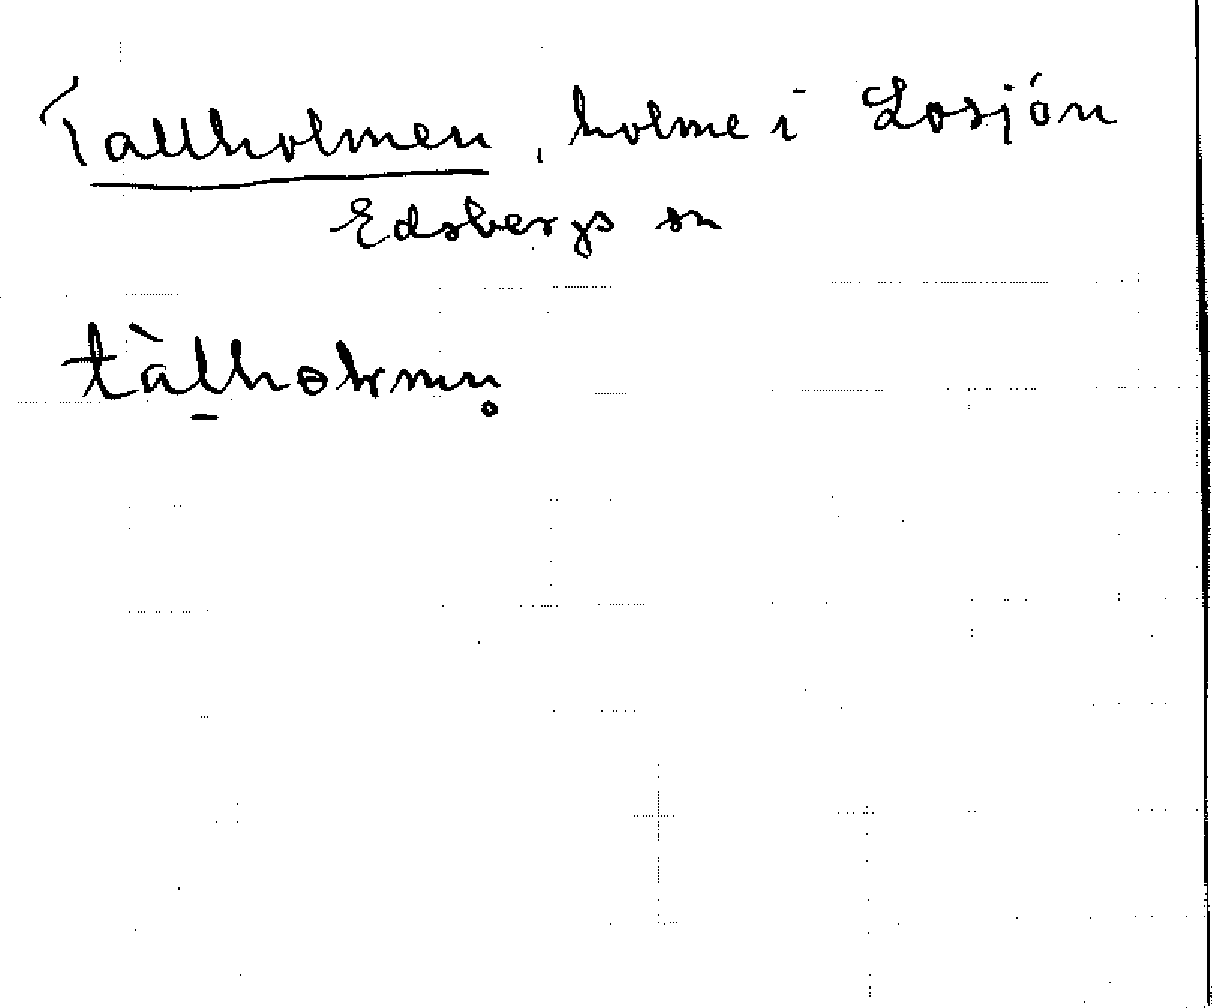 Tallholmen, holme i Losjön
Edsbergs sn
tàl̠holmn̥